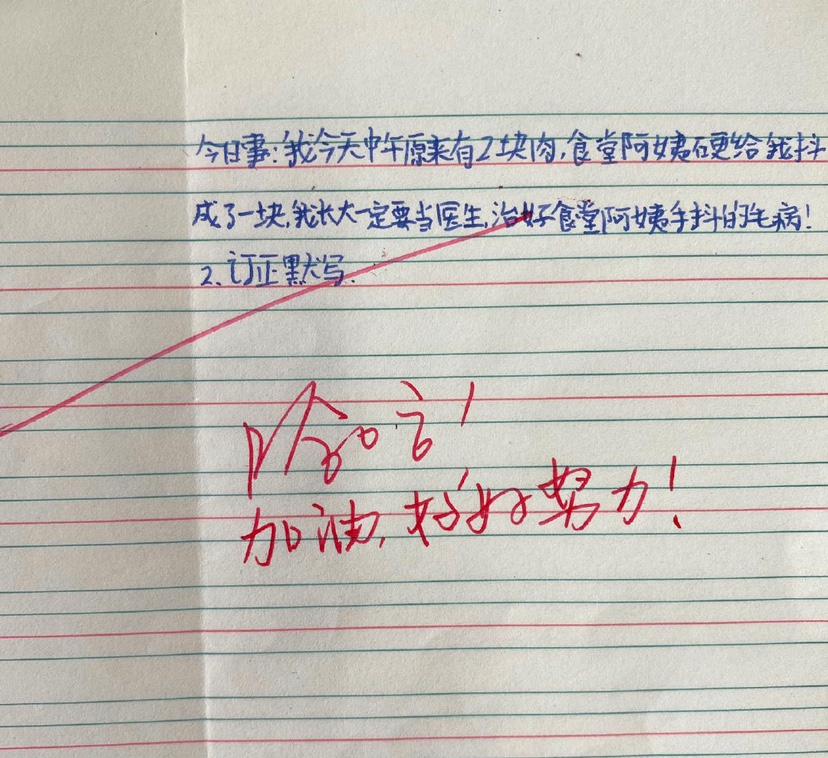 今日事:我今天中午原来有2块肉,食堂阿姨硬给我抖
成了一块,我长大一定要当医生,治好食堂阿姨手抖的毛病!
2、订正默写.
加油,好好努力!